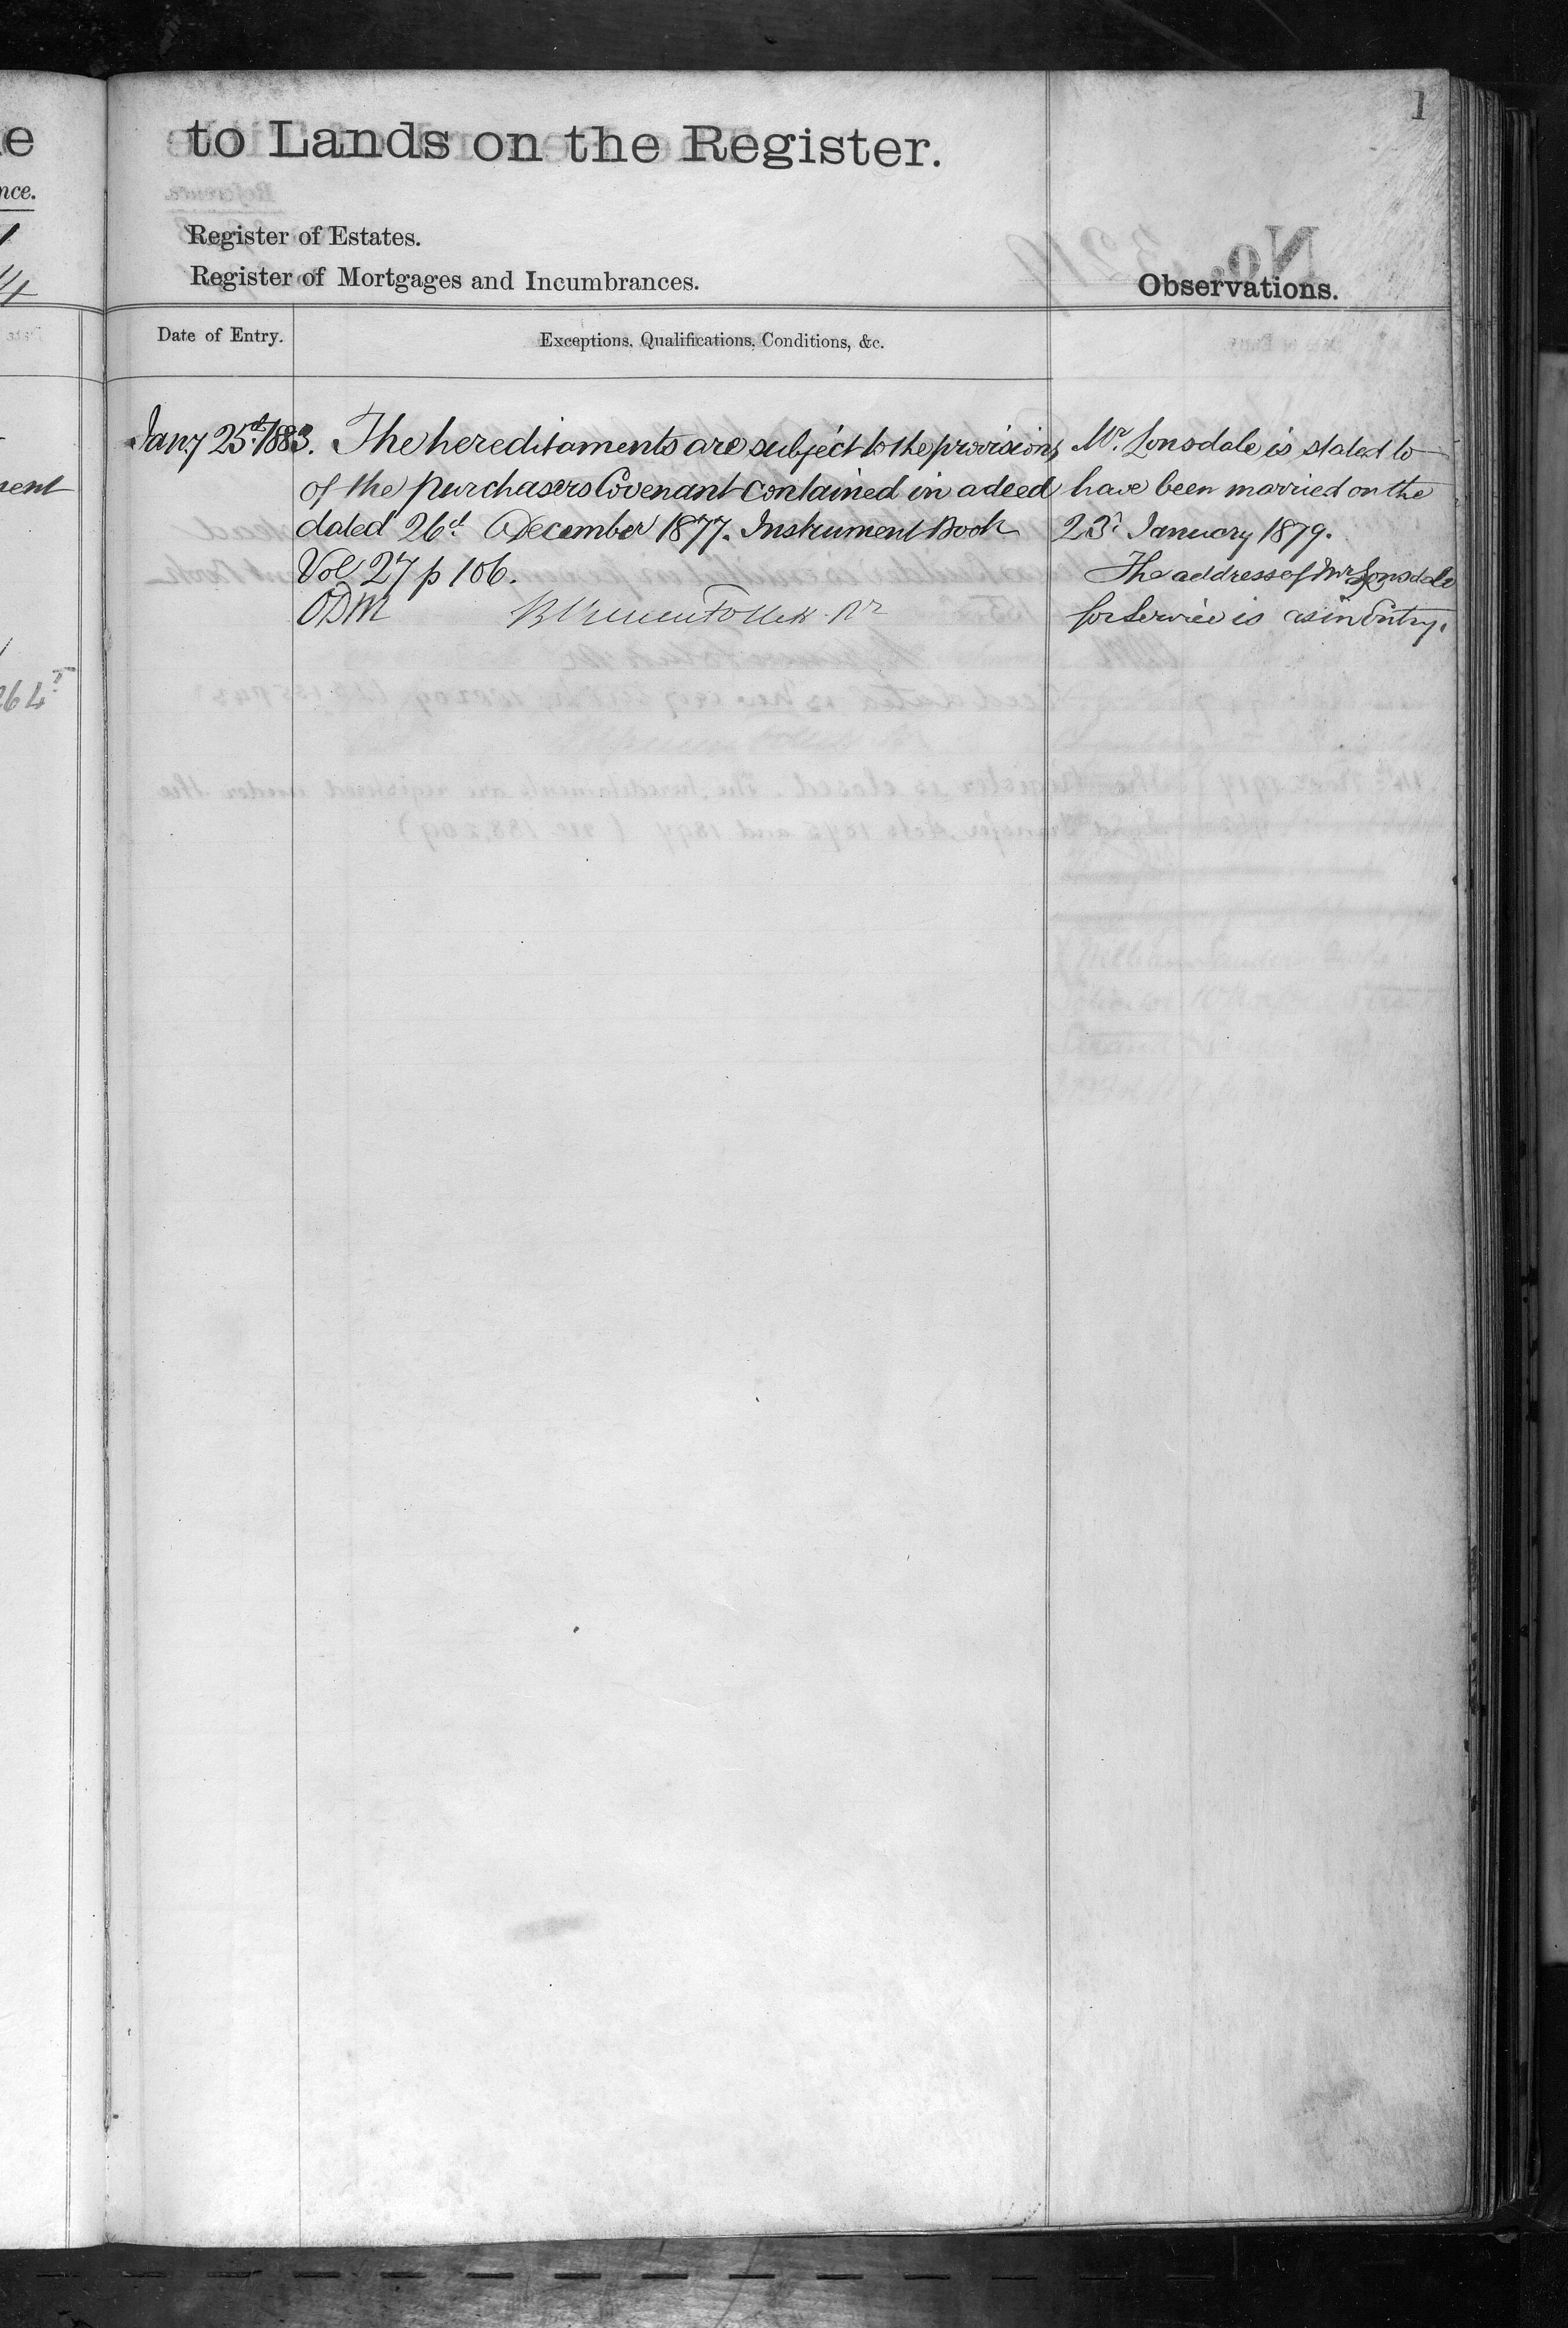 1
to Lands on the Register.
Register of Estates.
Register of Mortgages and Incumbrances.
Observations.
Date of Entry.
Exceptions, Qualifications, Conditions, &c.
Jany 25th 1883. The hereditaments are subject to the provisions
of the purchasers Covenant contained in a deed
dated 26th December 1877. Instrument Book
Vol 27 p 106.
ODM
Mr. Lonsdale is stated to
have been married on the
23d January 1879.
The address of Mr Lonsdale
for Service is as in Entry.
nce.
264